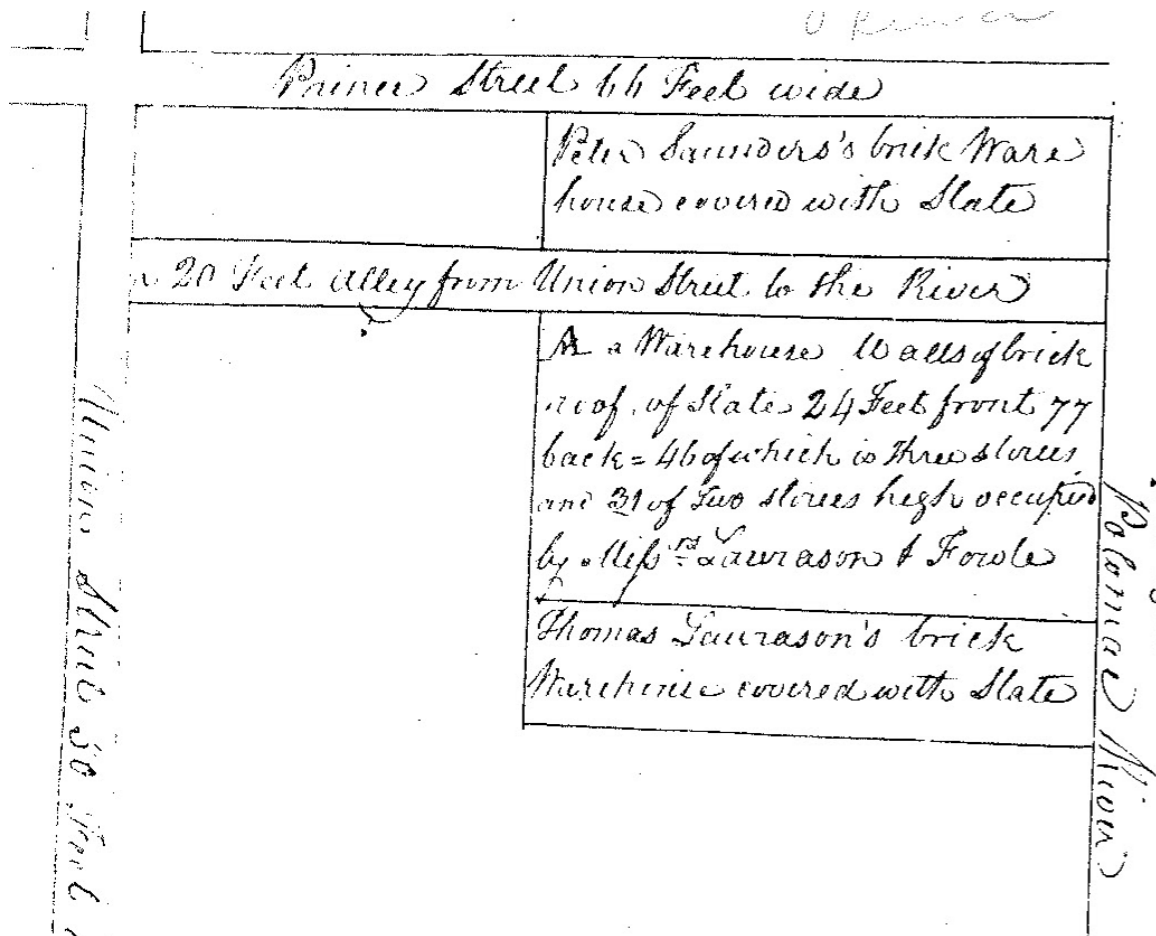 River
Prince Street 66 Feet wide
Peter Saunders's brick Ware
house covered with Slate
a 20 Feet Alley from Union Street to the River
A a Warehouse Walls of brick
roof of Slate 24 Feet front 77
back = 46 of which is three stories
and 31 of two stories high occupied
by Mess.rs Laurason & Fowle
Thomas Laurason's brick
Warehouse covered with Slate
Union Street 50 Feet
Potomac River